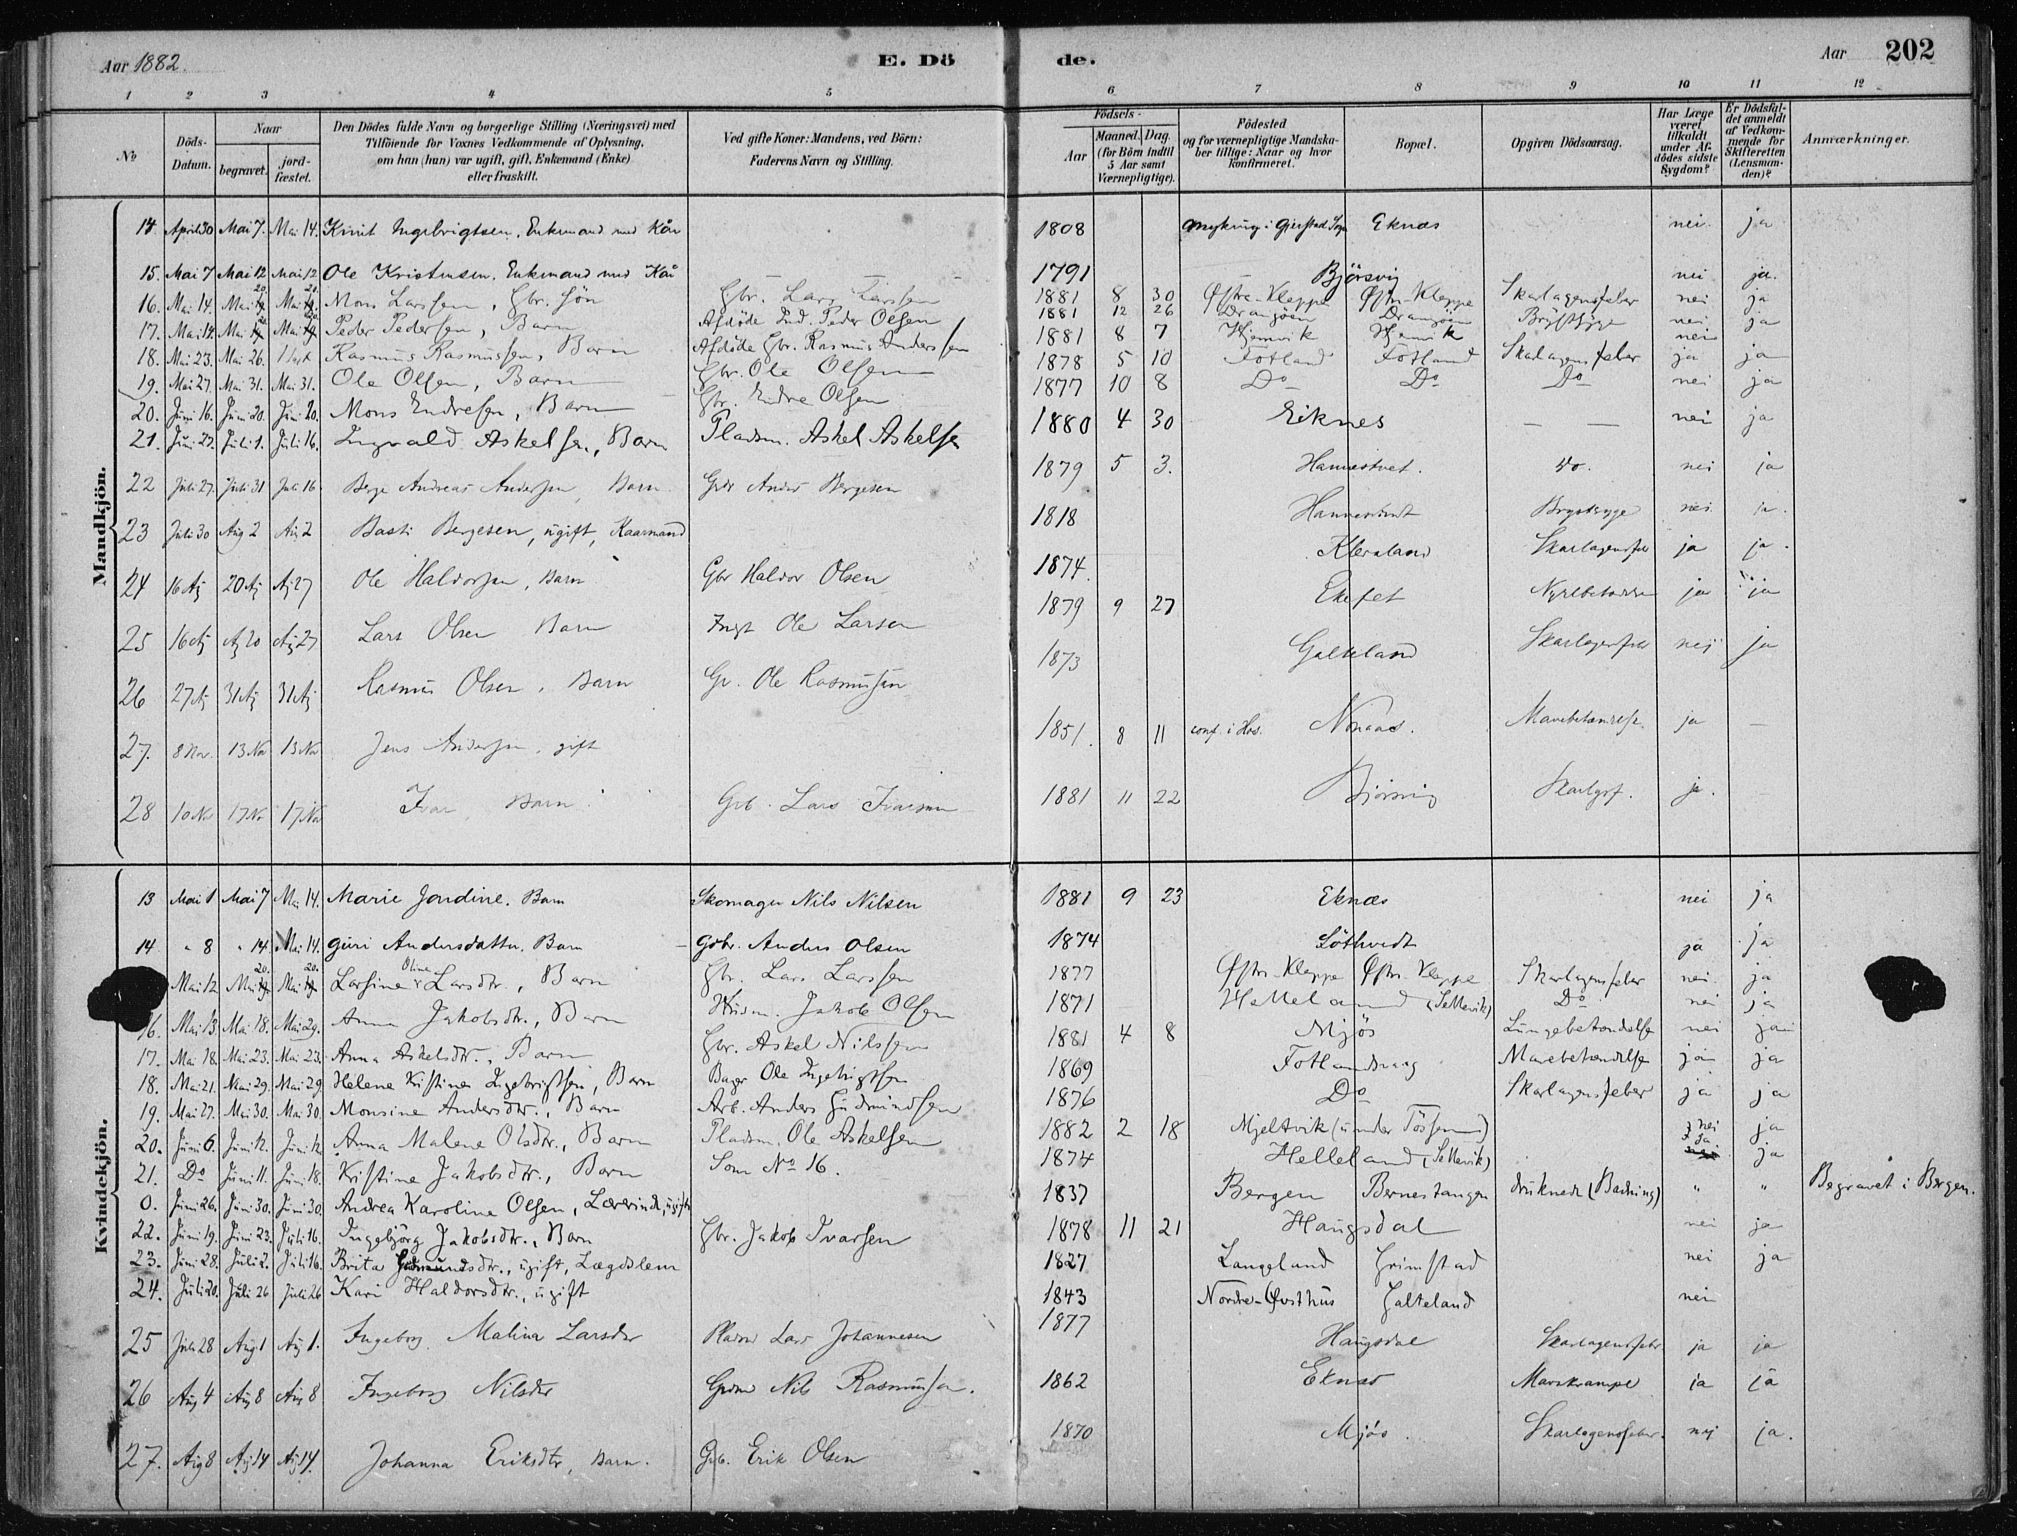 Aar 1882. E. Dö de. Aar 202
1 2 3 4 5 6 7 8 9 10 11 12
No
Döds-Datum.
Naar begravet. jord-fæstet.
Den Dödes fulde Navn og borgerlige Stilling (Næringsvei) med Tilföiende for Voxnes Vedkommende af Oplysning, om han (hun) var ugift, gift, Enkemand (Enke) eller fraskilt.
Ved gifte Koner: Mandens, ved Börn: Faderens Navn og Stilling.
Födsels- Aar Maaned. Dag. (for Börn indtil 5 Aar samt Værnepligtige).
Födested og for værnepligtige Mandskaber tillige: Naar og hvor konfirmeret.
Bopæl.
Opgiven Dödsaarsag.
Har Læge været tilkaldt under Afdödes sidste Sygdom?
Er Dödsfaldet anmeldt af Vedkommende for Skifteretten (Lensmanden)?
Anmærkninger.
Mandkjön.
14. April 30 Mai 7. Mai 14. Knut Ingebrigtsen. Enkemand med Kår 1808 Eknæs nei. ja
15. Mai 7 Mai 12 Mai 12 Ole Kristensen. Enkemand med Kår 1791 Bjørsvig nei ja.
16. Mai 14. Mai 20. Mai 20. Mons Larssen, Gbr. Søn Gbr. Lars Larssen 1881 8 30 Østre-Kleppe Østre-Kleppe Skarlagensfeber nei ja
17. Mai 14. Mai 20 Mai 20. Peder Pedersen, Barn Afdøde Ind. Peder Olsen 1881 12 26 Drangøen Drangøen Brystsyge nei ja
18. Mai 23. Mai 26. Rasmus Rasmussen, Barn Afdøde Gbr. Rasmus Anderssen 1881 8 7 Hjemvik Hjemvik nei
19. Mai 27. Mai 31. Mai 31. Ole Olsen, Barn Gbr. Ole Olsen 1878 5 10 Fotland Fotland Skarlagensfeber ja ja
20. Juni 16. Juni 20. Juni 20. Mons Endresen, Barn Gbr. Endre Olsen 1877 10 8 Do Do Do nei ja
21. Juni 27. Juli 1. Juli 16. Ingvald Askelsen, Barn Pladsm. Askel Askelsen 1880 4 30 Eiknes — — nei ja
22 Juli 27. Juli 31 Juli 16 Berge Andreas Andersen, Barn Gbr Anders Bergesen 1879 5 3. do. nei ja
23 Juli 30 Aug 2 Aug 2 Basti Bergesen, ugift, Kaarmand 1818 Brystsyge nei ja.
24 16 Ag 20 Ag Ag 27 Ole Haldorsen, Barn Gbr Haldor Olsen 1874. Skarlagensfeb ja ja.
25 16 Ag Ag 20 Ag 27 Lars Olsen Barn Ole Larsen 1879 9 27 Ekeset ja ja
26 27 Ag 31 Ag 31 Ag Rasmus Olsen, Barn Gr. Ole Rasmussen 1873 Galteland Skarlagensfeb nei ja
27. 8 Nov. 13 Nov 13 Nov Jens Andersen, gift 1851. 8 11 conf. i Hos. Mavebetændelse ja —
28 10 No 17 No 17 Nov Ivar, Barn Grb. Lars Ivarsen 1881 11 22 Bjørsvig Skarlgsf. ja. —
Kvindekjön.
13 Mai 1 Mai 7 Mai 14. Marie Jondine. Barn Skomager Nils Nilsen 1881 9 23 Eknæs nei ja
14 " 8 " 14. Mai 14. Guri Andersdatter. Barn Gbr. Anders Olsen 1874 Løthvedt ja ja
Mai 12 Mai 20. Mai 20. Larsine Oline Larsdtr., Barn Gbr. Lars Larssen 1877 Østre-Kleppe Østre-Kleppe Skarlagensfeber nei. ja
16. Mai 13. Mai 18. Mai 29. Anna Jakobsdtr., Barn Husm. Jakob Olsen 1871 Helleland (Settevik) Do nei ja
17. Mai 18. Mai 23. Mai 23. Anna Askelsdtr., Barn Gbr. Askel Nilssen 1881 4 8 Mjøs Lungebetændelse nei ja
18. Mai 21. Mai 29. Mai 29. Helene Kristine Ingebrigtsen, Barn Bager Ole Ingebrigtsen 1869 Fotlandsvaag Mavebetændelse ja ja
19. Mai 27. Mai 30. Mai 30. Monsine Andersdtr., Barn Arb. Anders Gudmundsen 1876 Do Skarlagensfeber ja ja
20. Juni 6. Juni 12. Juni 12. Anna Malene Olsdtr., Barn Pladsm. Ole Askelsen 1882 2 18 Mjeltvik (under Tøssem) nei ja
21. Do Juni 11. Juni 18. Kristine Jakobsdtr., Barn Som No 16. 1874 Helleland (Settevik) ja ja
0. Juni 26. Juni 30. Juni 30. Andrea Karoline Olsen, Lærerinde, ugift 1837 Bergen Bernestangen druknede (Badning) " " Begravet i Bergen.
22. Juni 19. Juni 23. Juli 16. Ingebjørg Jakobsdtr., Barn Gbr. Jakob Ivarsen 1878 11 21 Haugsdal nei ja
23. Juni 28. Juli 2. Juli 16. Brita Gudmundsdtr., ugift, Lægdslem 1827 Langeland Grimstad nei ja
24. Juli 20. Juli 26 Juli 26 Kari Haldorsdtr., ugift 1843 Nordre-Øvsthus Galteland nei
25 Juli 28 Aug 1 Aug 1. Ingeborg Malina Larsdtr Pladsm Lars Johannesen 1877 Haugsdal Skarlagensfeber ja ja
26 Aug 4 Aug 8 Aug 8 Ingeborg Nilsdtr Nils Rasmussen. 1862 Eknæs Mavekrampe ja ja
27. Aug 8 Ag 14 Ag 14. Johanna Eriksdtr, Barn. Grb. Erik Olsen 1870 Mjøs. Skarlagensfeber. nei ja.